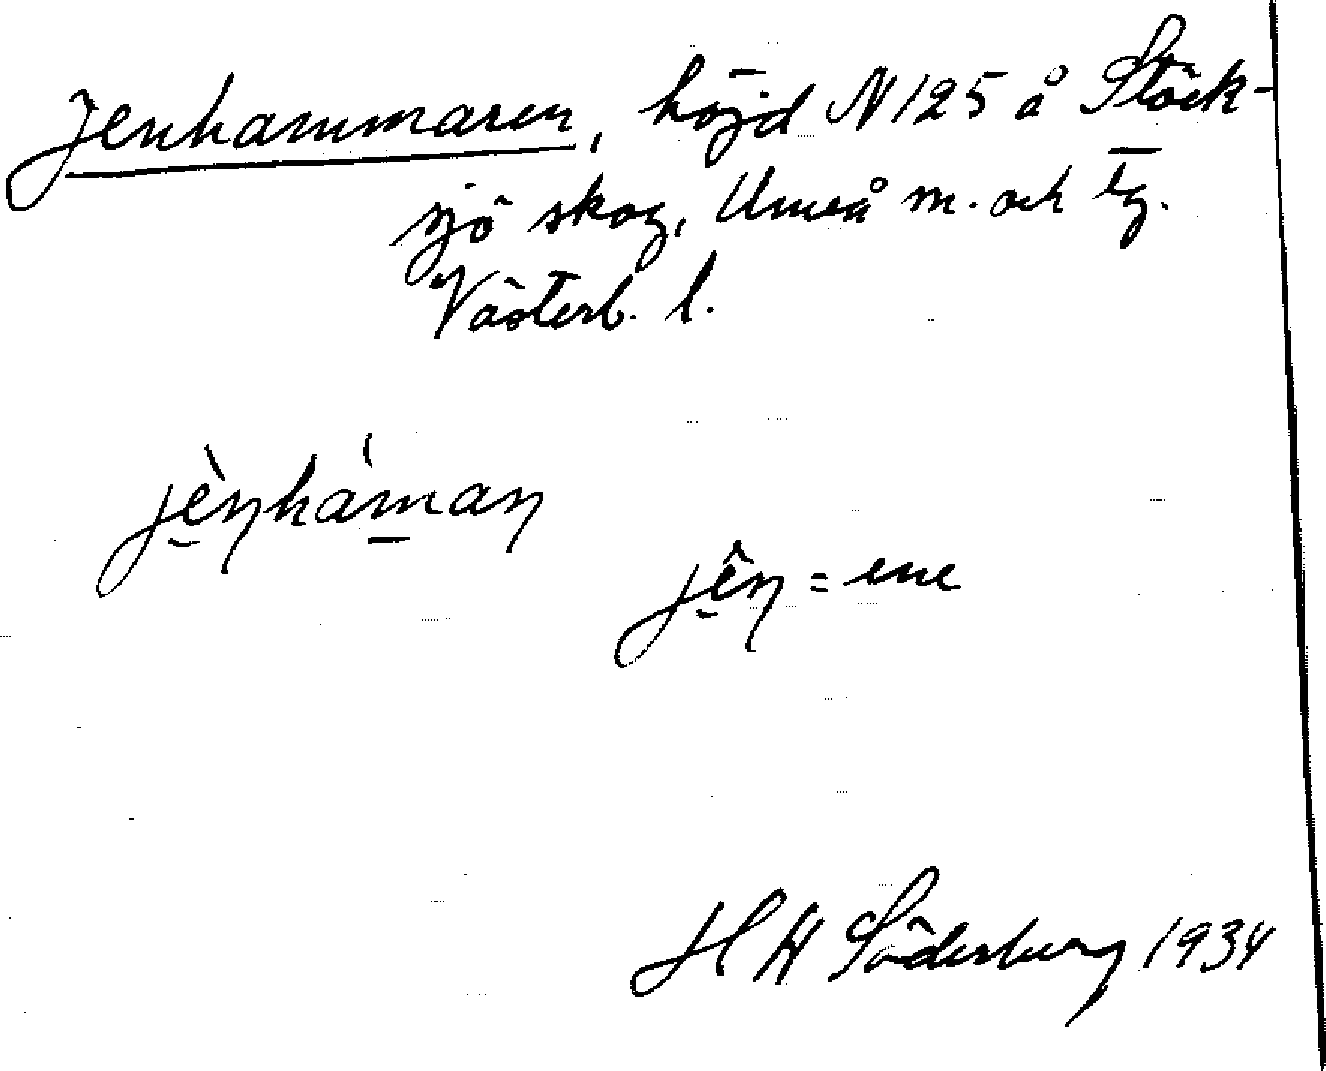 Jenhammaren, höjd N 125 å Stöck-
sjö skog, Umeå m. och tg.
Västerb. l.
jè̱ŋhám̱aŋ
jê̱ŋ = ene
H W Söderberg 1934